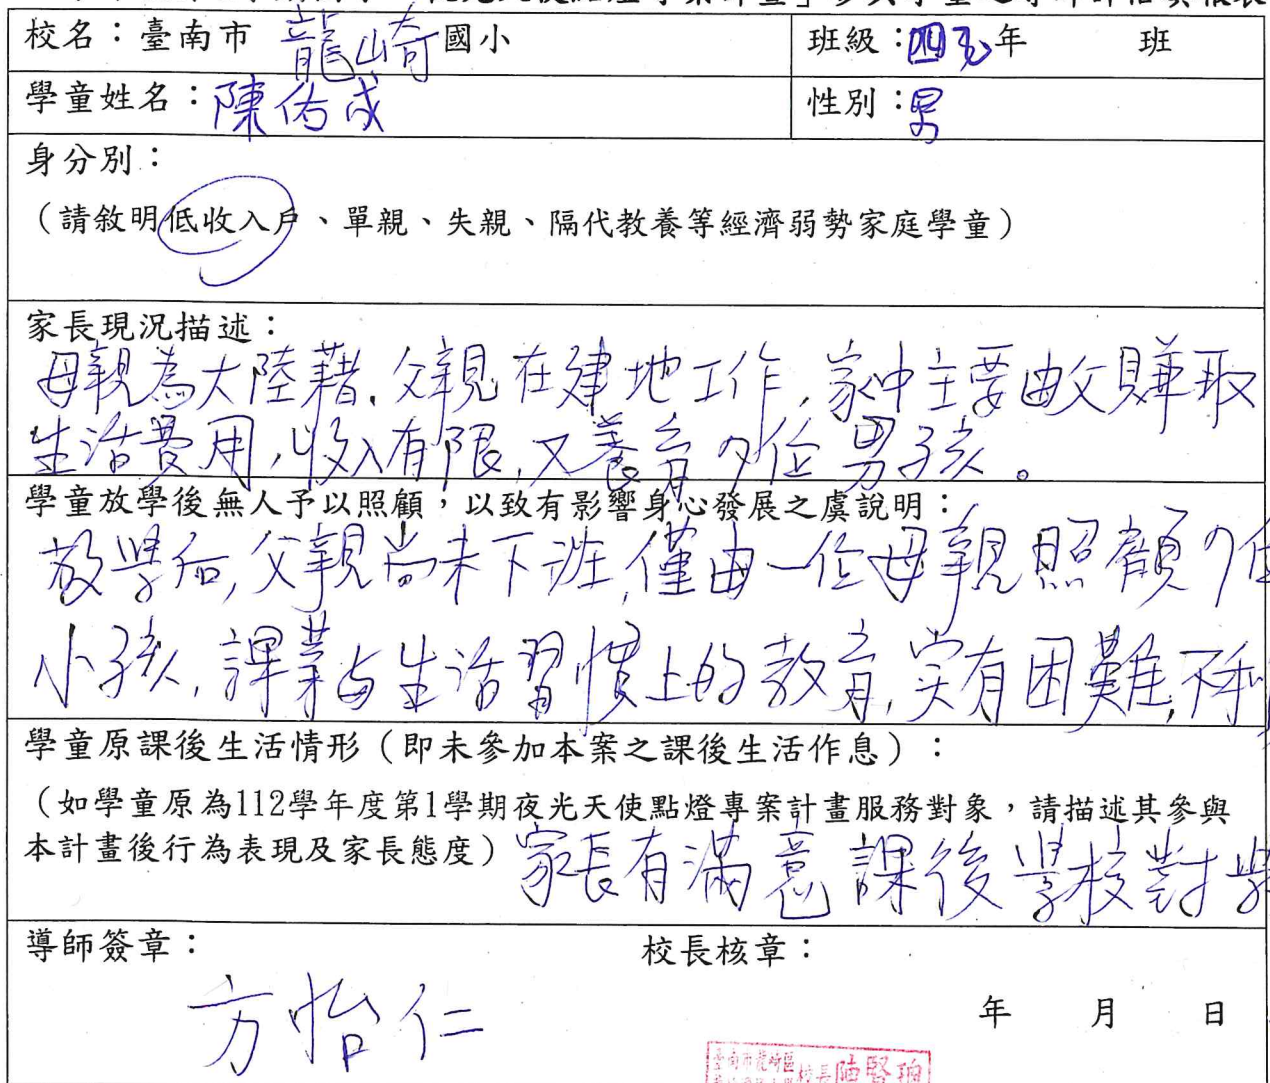 夜光天使點燈專案計畫」參與學童之導師評估填報表
校名：臺南市 龍崎 國小 班級：四 年 班
學童姓名：陳佑成 性別：男
身分別：
（請敘明低收入戶、單親、失親、隔代教養等經濟弱勢家庭學童）
家長現況描述：
母親為大陸藉.父親在建地工作,家中主要由父賺取
生活費用,收入有限,又養育 位男孩。
學童放學後無人予以照顧，以致有影響身心發展之虞說明：
放學后,父親尚未下班,僅由一位母親照顧 位
小孩,課業与生活習慣上的教育,实有困難,不利
學童原課後生活情形（即未參加本案之課後生活作息）：
（如學童原為112學年度第1學期夜光天使點燈專案計畫服務對象，請描述其參與
本計畫後行為表現及家長態度）家長有滿意課後學校對學
導師簽章： 校長核章：
方怡仁
年 月 日
臺南市龍崎區 校長陸賢